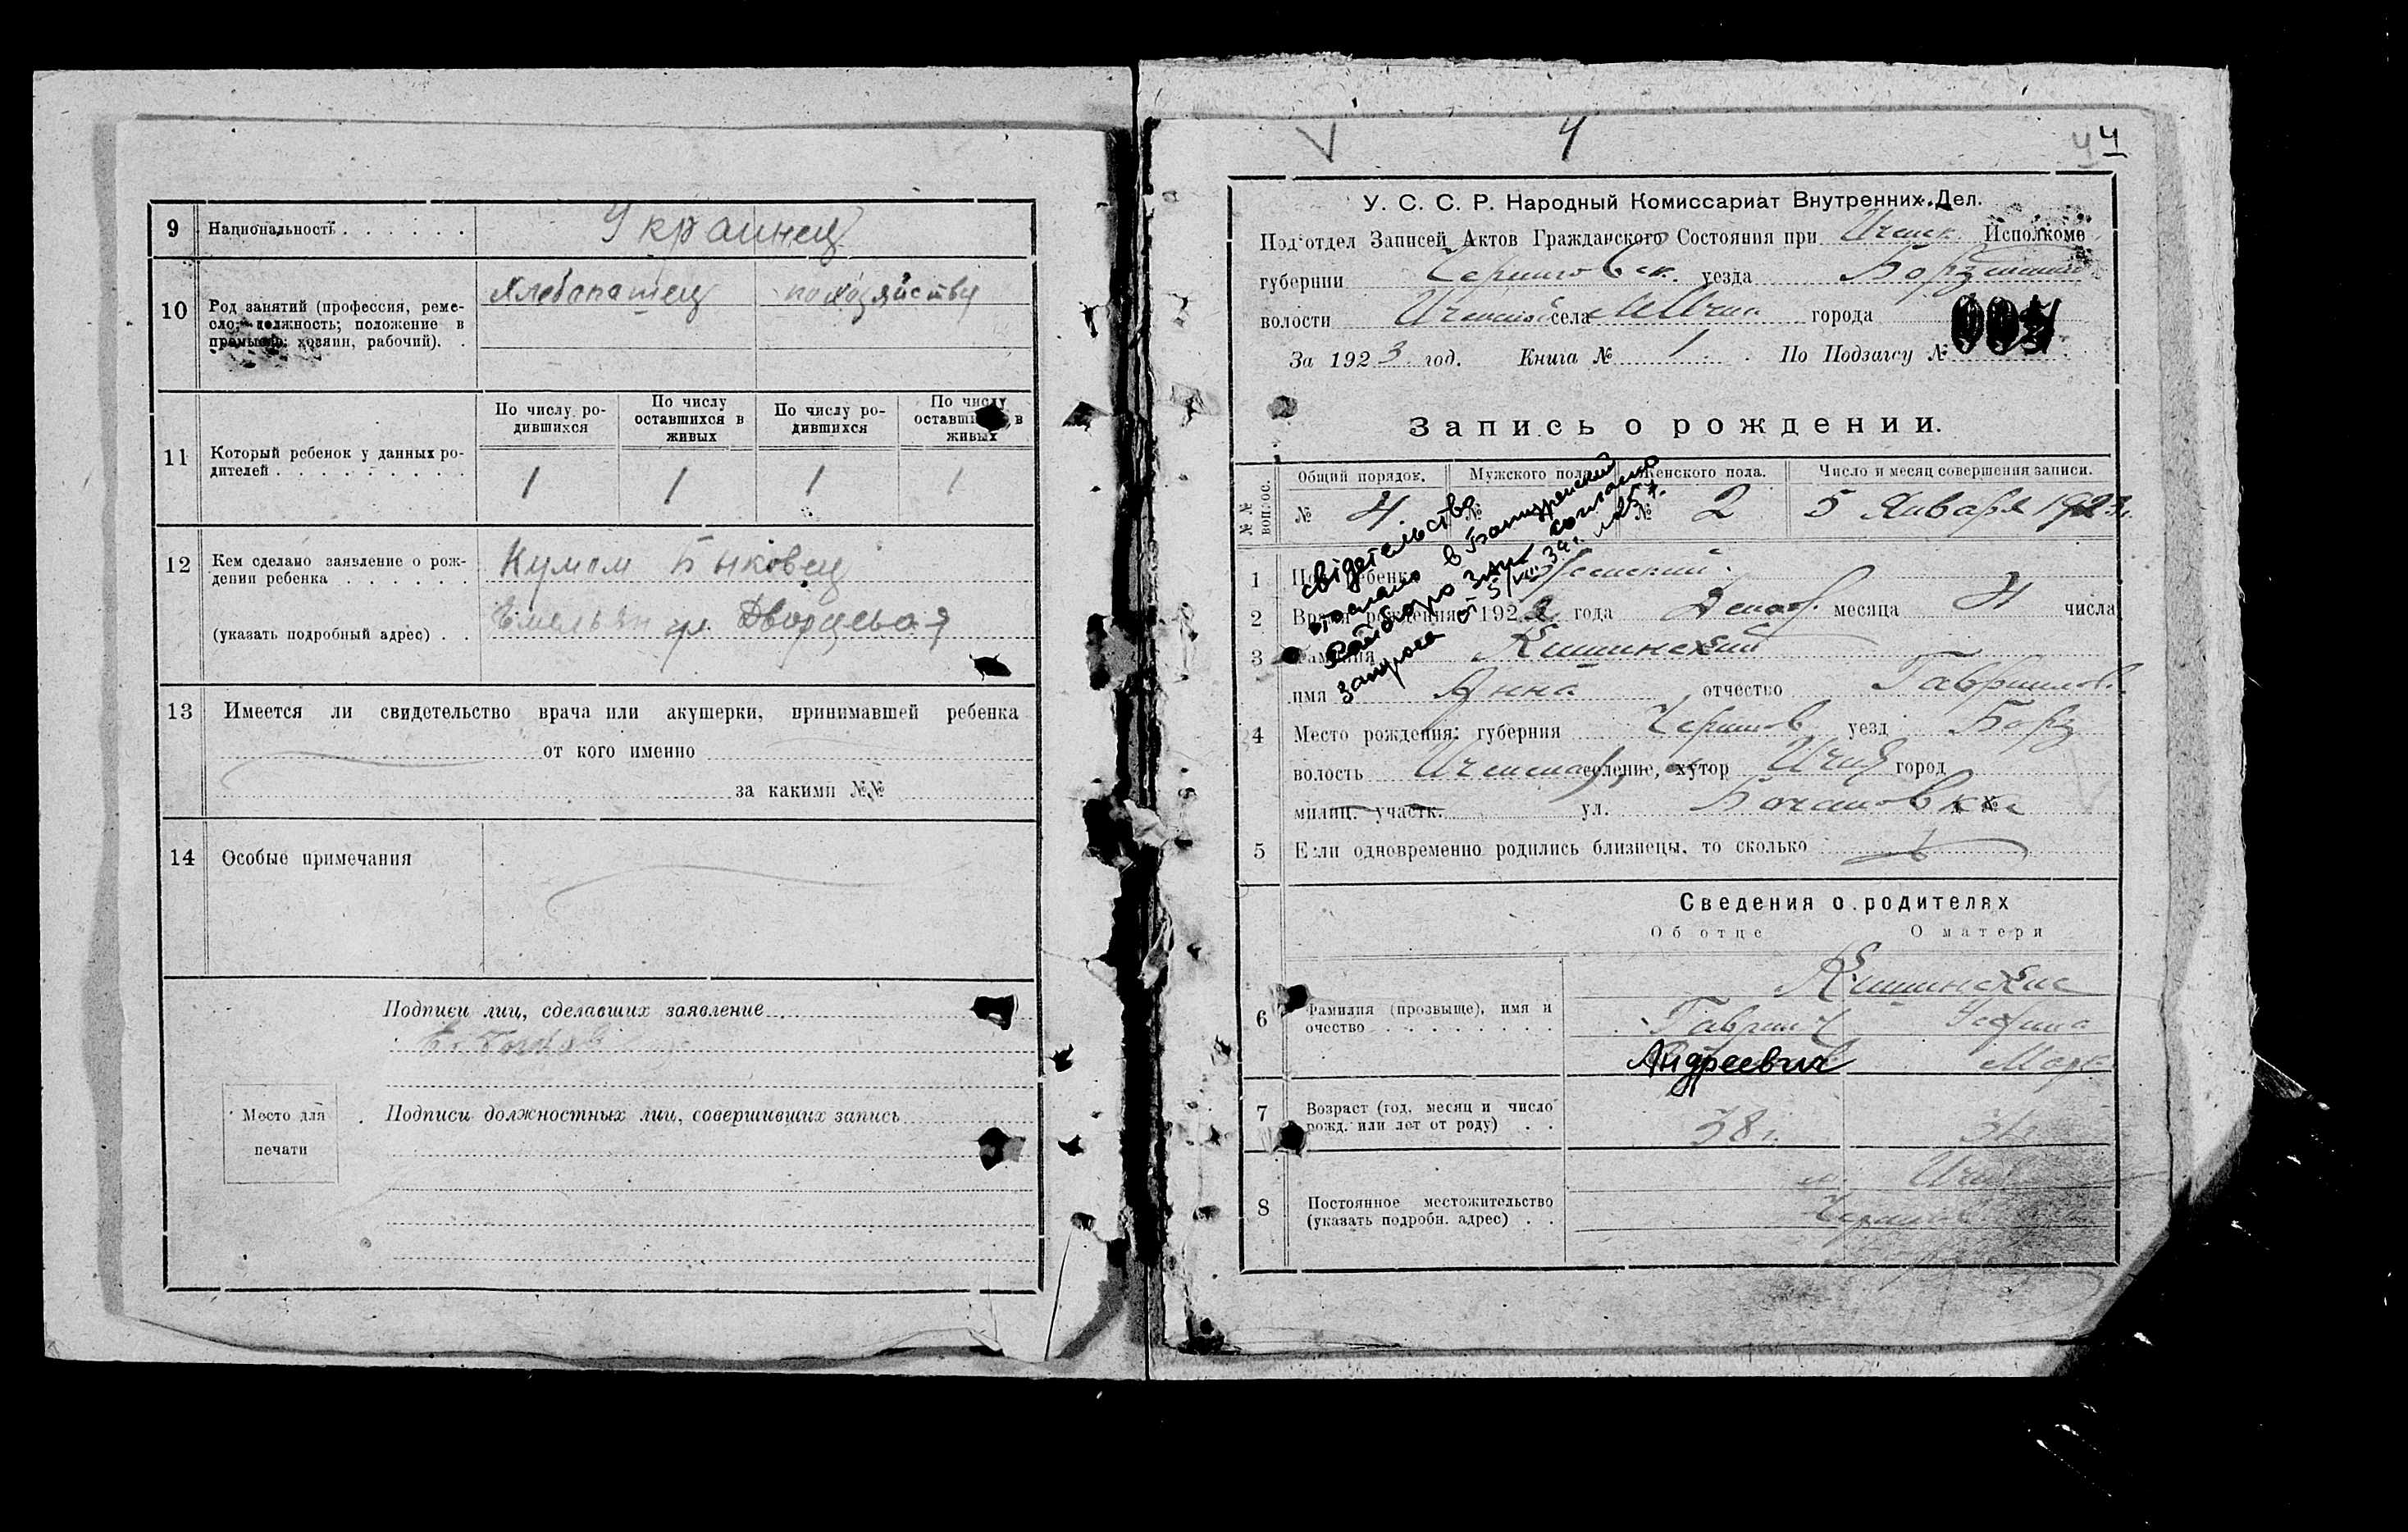 9 Национальность . . . . . . Украинец
10 Род занятий (профессия, реме-
сло; должность; положение в
промысле: хозяин, рабочий). .
Хлебопашец по хозяйству
11 Который ребенок у данных ро-
дителей . . . . . . . . .
По числу ро-
дившихся
По числу
оставшихся в
живых
По числу ро-
дившихся
По числу
оставшихся в
живых
1 1 1 1
12 Кем сделано заявление о рож-
дении ребенка . . . . . .
(указать подробный адрес) . .
Кумом Быковец
Емельян ул. Дворцевая
13 Имеется ли свидетельство врача или акушерки, принимавшей ребенка
от кого именно
за какими №№
14 Особые примечания
Подписи лиц, сделавших заявление
Место для
печати
Подписи должностных лиц, совершивших запись
4
4 4
У. С. С. Р. Народный Комиссариат Внутренних Дел.
Под'отдел Записей Актов Гражданского Состояния при Иченск. Исполкоме
губернии Черниговск. уезда
волости села города
За 1923 год. Книга № 1. По Подзагсу № 004
Запись о рождении.
№ №
вопрос.
Общий порядок. Мужского пола. Женского пола. Число и месяц совершения записи.
№ 4 № № 2 5 Января 1923г.
свідетельство
выслано в Батуренский
Райбюро ЗАГС согласно
запроса от 5/VIII 34г. №257.
1 Пол ребенка Женский.
2 Время рождения: 1922 года Декаб. месяца 4 числа
3 Фамилия Кишинский
имя Анна отчество Гавриилов.
4 Место рождения: губерния Чернигов уезд Борз
волость селение, хутор Ичня город
милиц. участк. ул. №
5 Если одновременно родились близнецы, то сколько
Сведения о родителях
Об отце О матери
6 Фамилия (прозвище), имя и
очество . . . . . . . .
Кишинские
Гавриил
Андреевич Марк
7 Возраст (год, месяц и число
рожд. или лет от роду) . .
38 г.
8 Постоянное местожительство
(указать подробн. адрес) . .